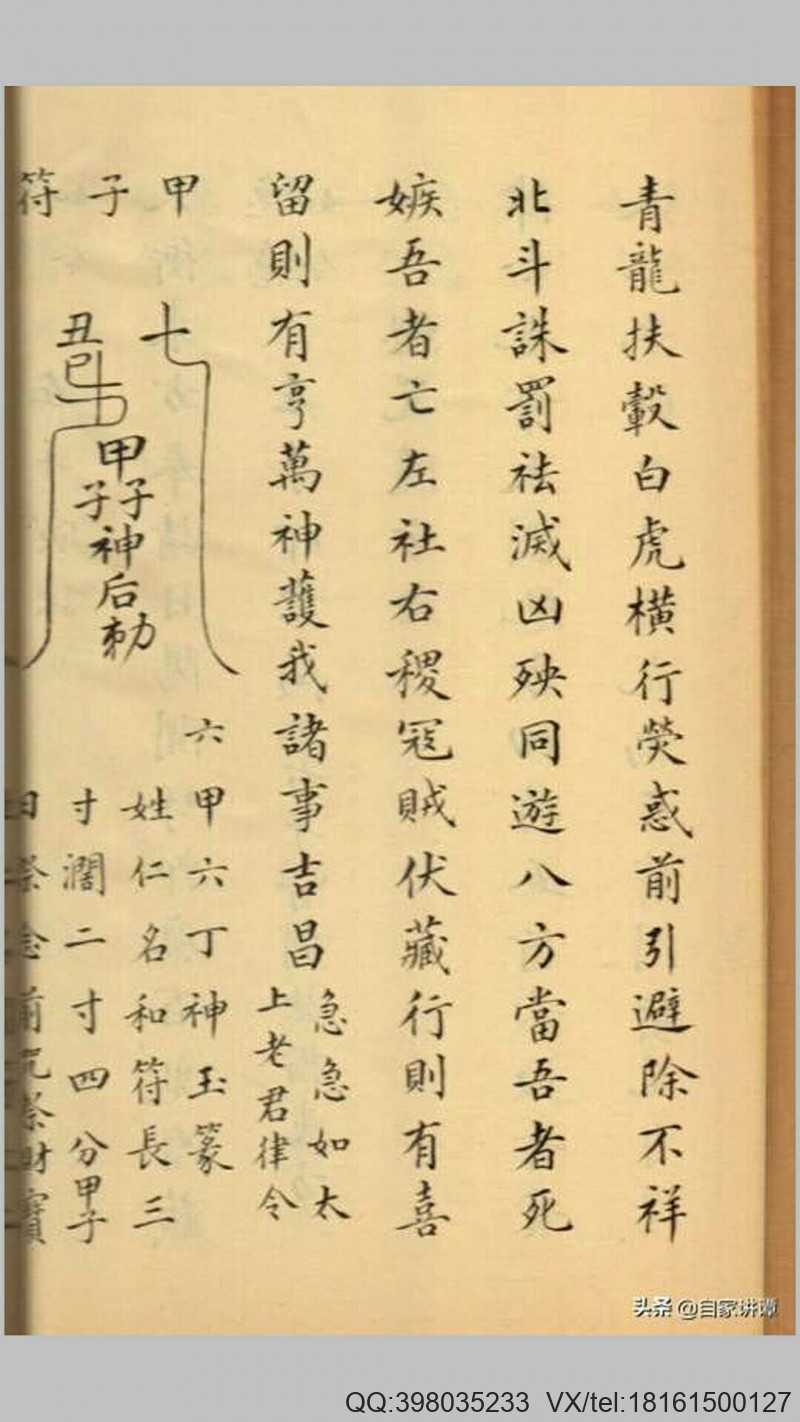 青龍扶轂白虎橫行熒惑前引避除不祥
北斗誅罰祛滅凶殃同遊八方當吾者死
嫉吾者亡左社右稷冦賊伏藏行則有喜
留則有亨萬神護我諸事吉昌
急急如太
上老君律令
甲子符
七
丑
甲
子子
神后勅
六甲六丁神玉篆
姓仁名和符長三
寸濶二寸四分甲子
日祭
前
祭財寶
头条 @自家讲谭
QQ:398035233 VX/tel:18161500127